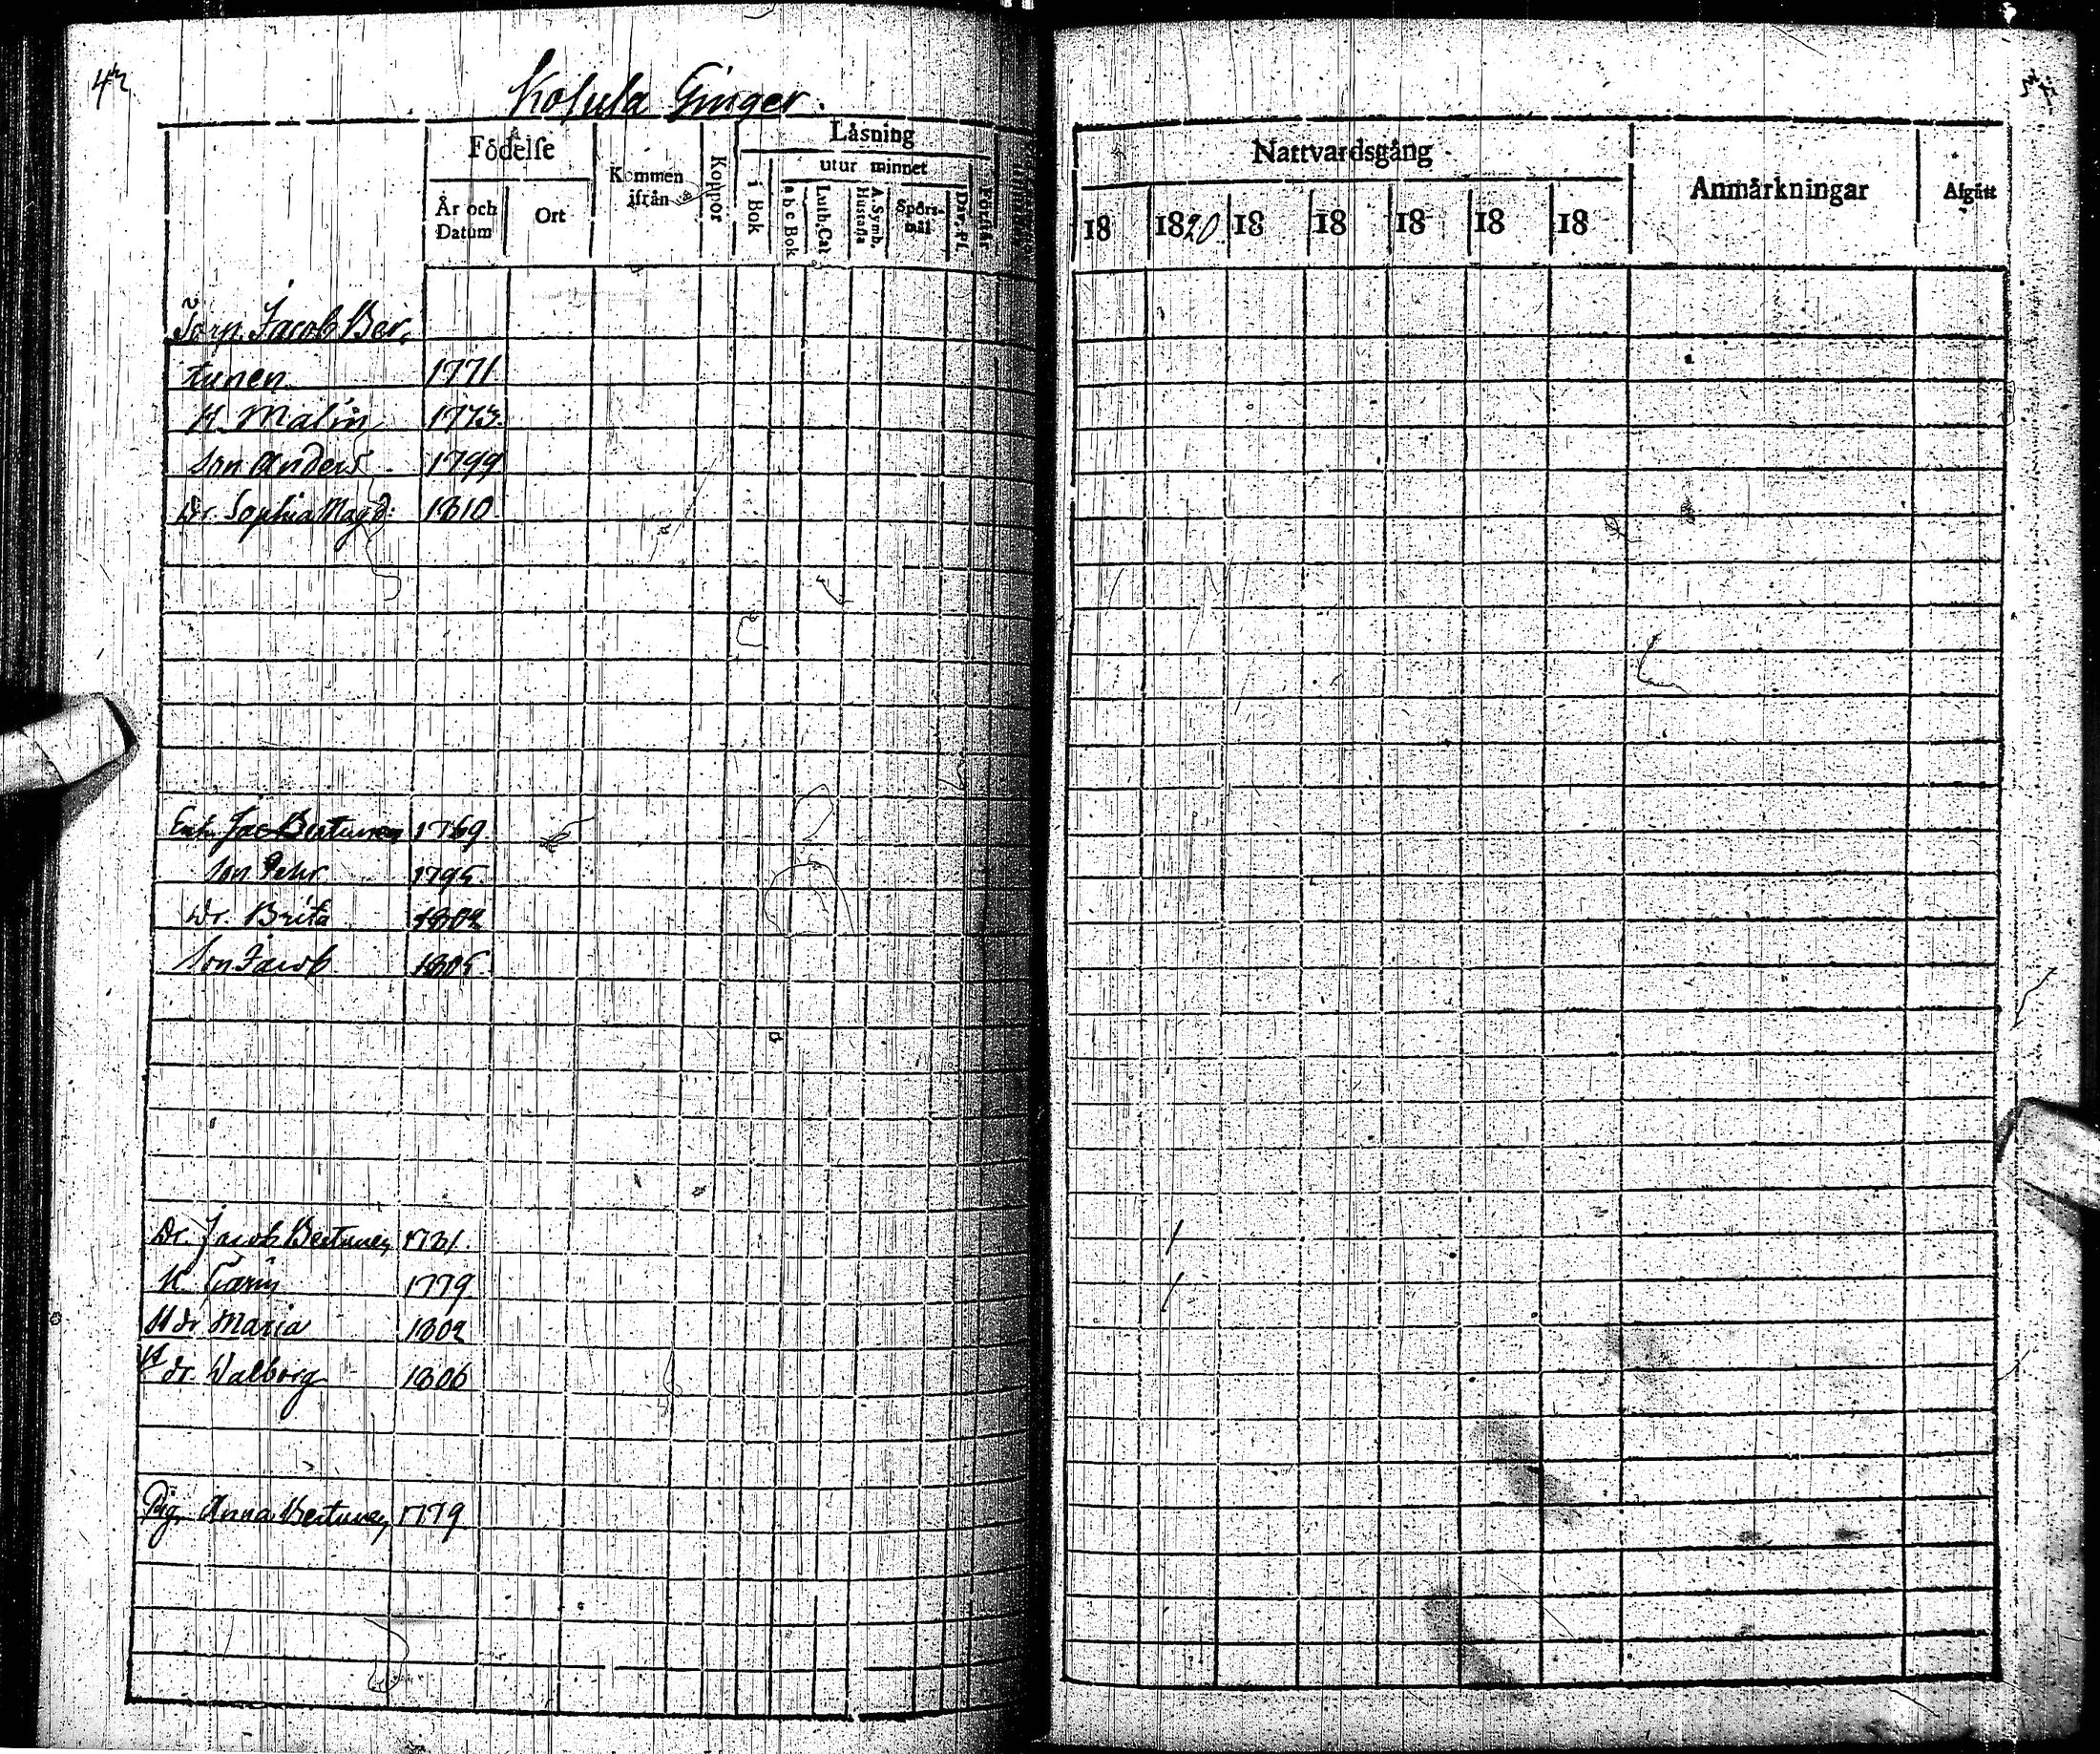 42
Kosula Ginger.
Födelse
Läsning
Nattvardsgång
Anmärkningar
Afgått
År och Datum
Ort
Kommen ifrån
Koppor
i Bok
utur minnet
a b c Bok
Luth. Cat.
A. Symb. Hustafla
Spörs-mål
Dav. Ps.
Förstår
18 1820 18 18 18 18 18
Jacob Ber-
tunen 1771
H. Malin 1773.
Son Anders 1799
Dr. Sophia Magd: 1810
Enk. Jac Bertunen 1769
Son Pehr 1795
Dr. Brita 1802
Son Jacob 1805
Dr. Jacob Bertunen
H. Carin 1779
H dr Maria 1802
H dr. Walborg 1806
Pig. Anna Bertunen 1779